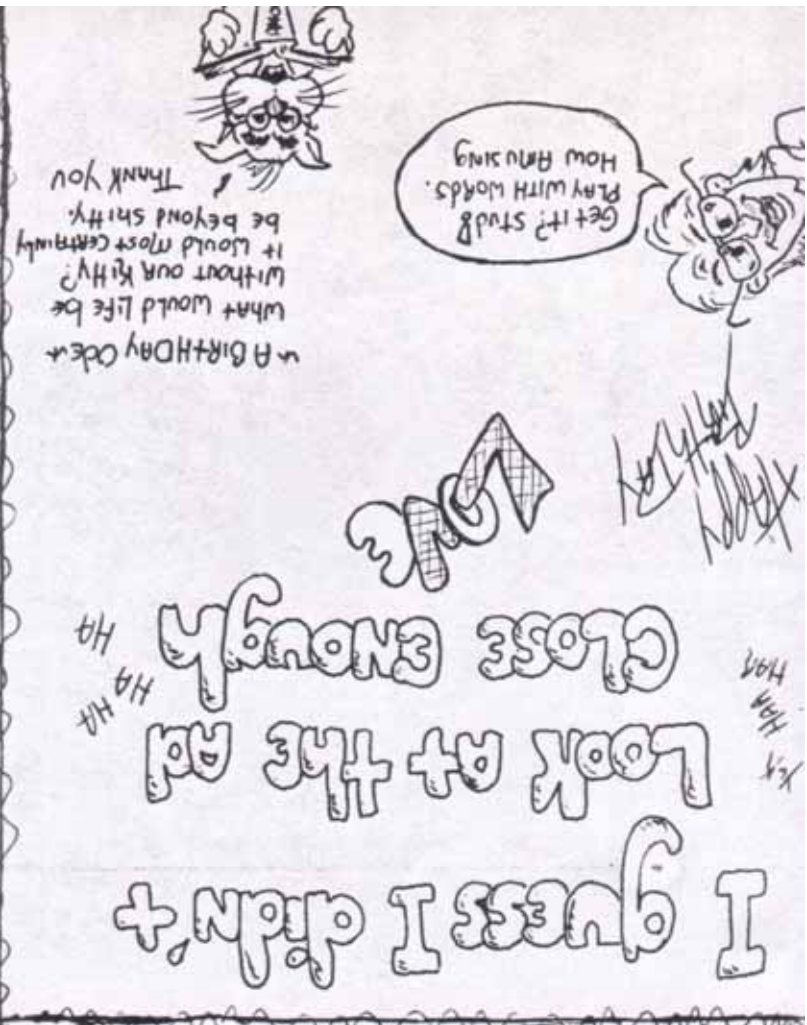 I guess I didn't
Look at the Ad
close enough
HAA
HAR
HA
HA
HA
LOVE
Happy
Birthday
~ A BIRTHDAY Ode ~
What would Life be
without our Kitty?
It would most certainly
be beyond shitty.
Thank you
Get it?
Play with words.
How Amusing